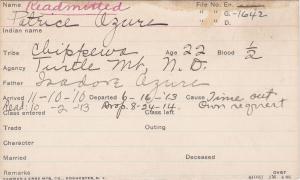 Name Readmitted File No. En.
Patrice Azure " " G.-1642
Indian name " " D.-
Tribe Chippewa Age 22 Blood 1/2
Agency Turtle Mt. N. D.
Father Isadore Azure
Arrived 11-10-'10 Departed 6-16-'13 Cause Time out
Read. 10-2-'13 Drop. 8-24-14. Own request
Class entered Class left
Trade Outing
Character
Married Deceased
Remarks
over